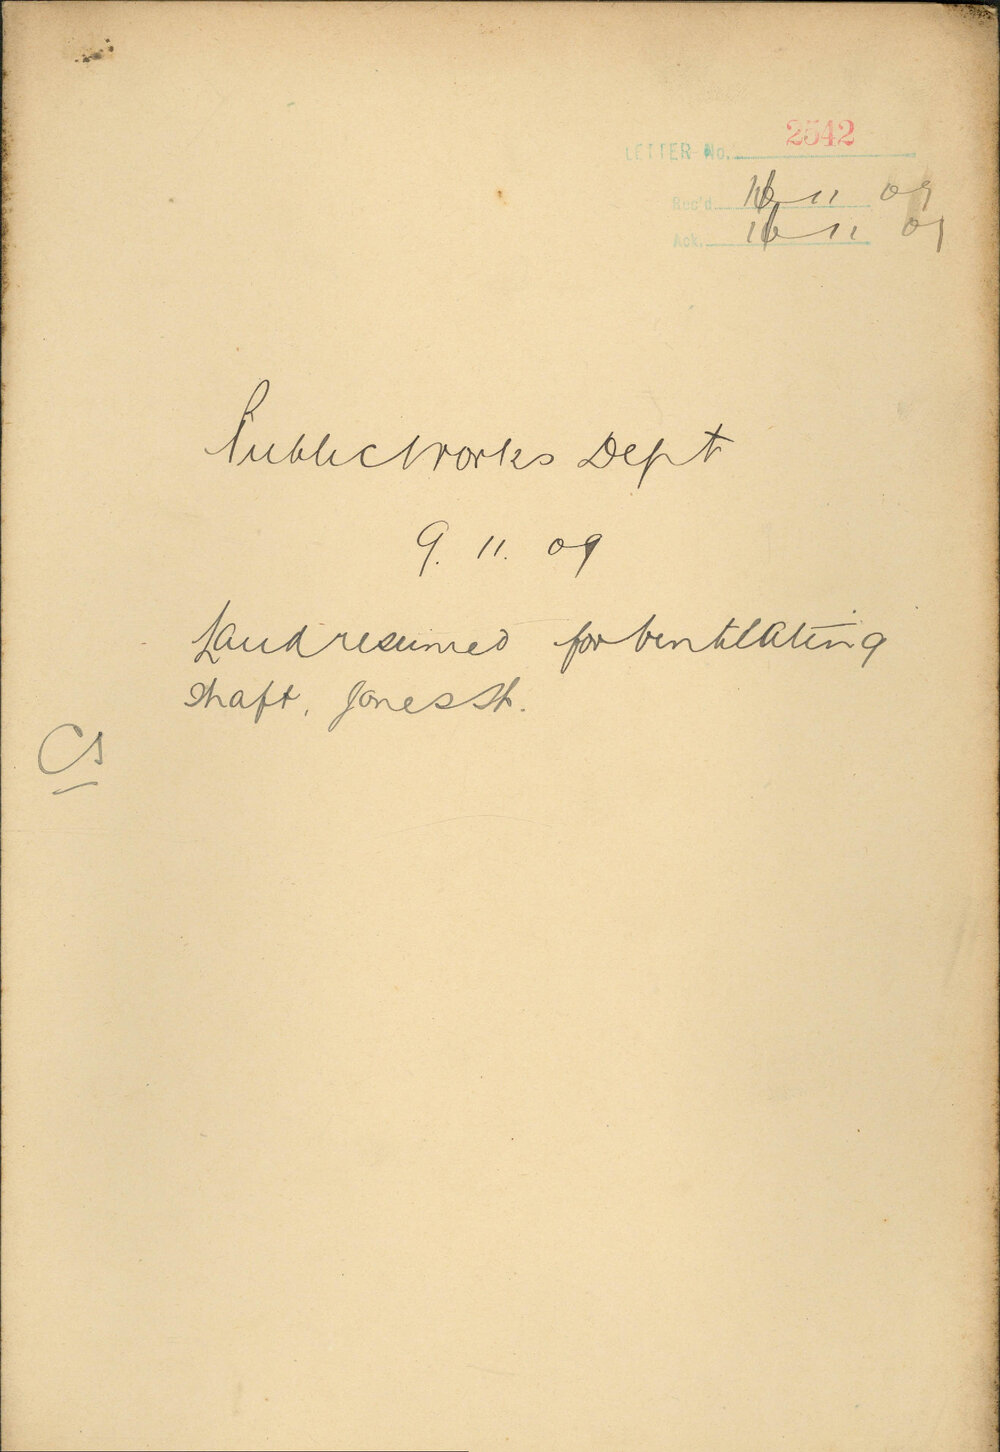 LETTER No. 2542
Rec'd 16 11 09
Ack. 16 11 09
Public Works Dept
9. 11. 09
Land resumed for Ventilating
Shaft, Jones St.
Cs